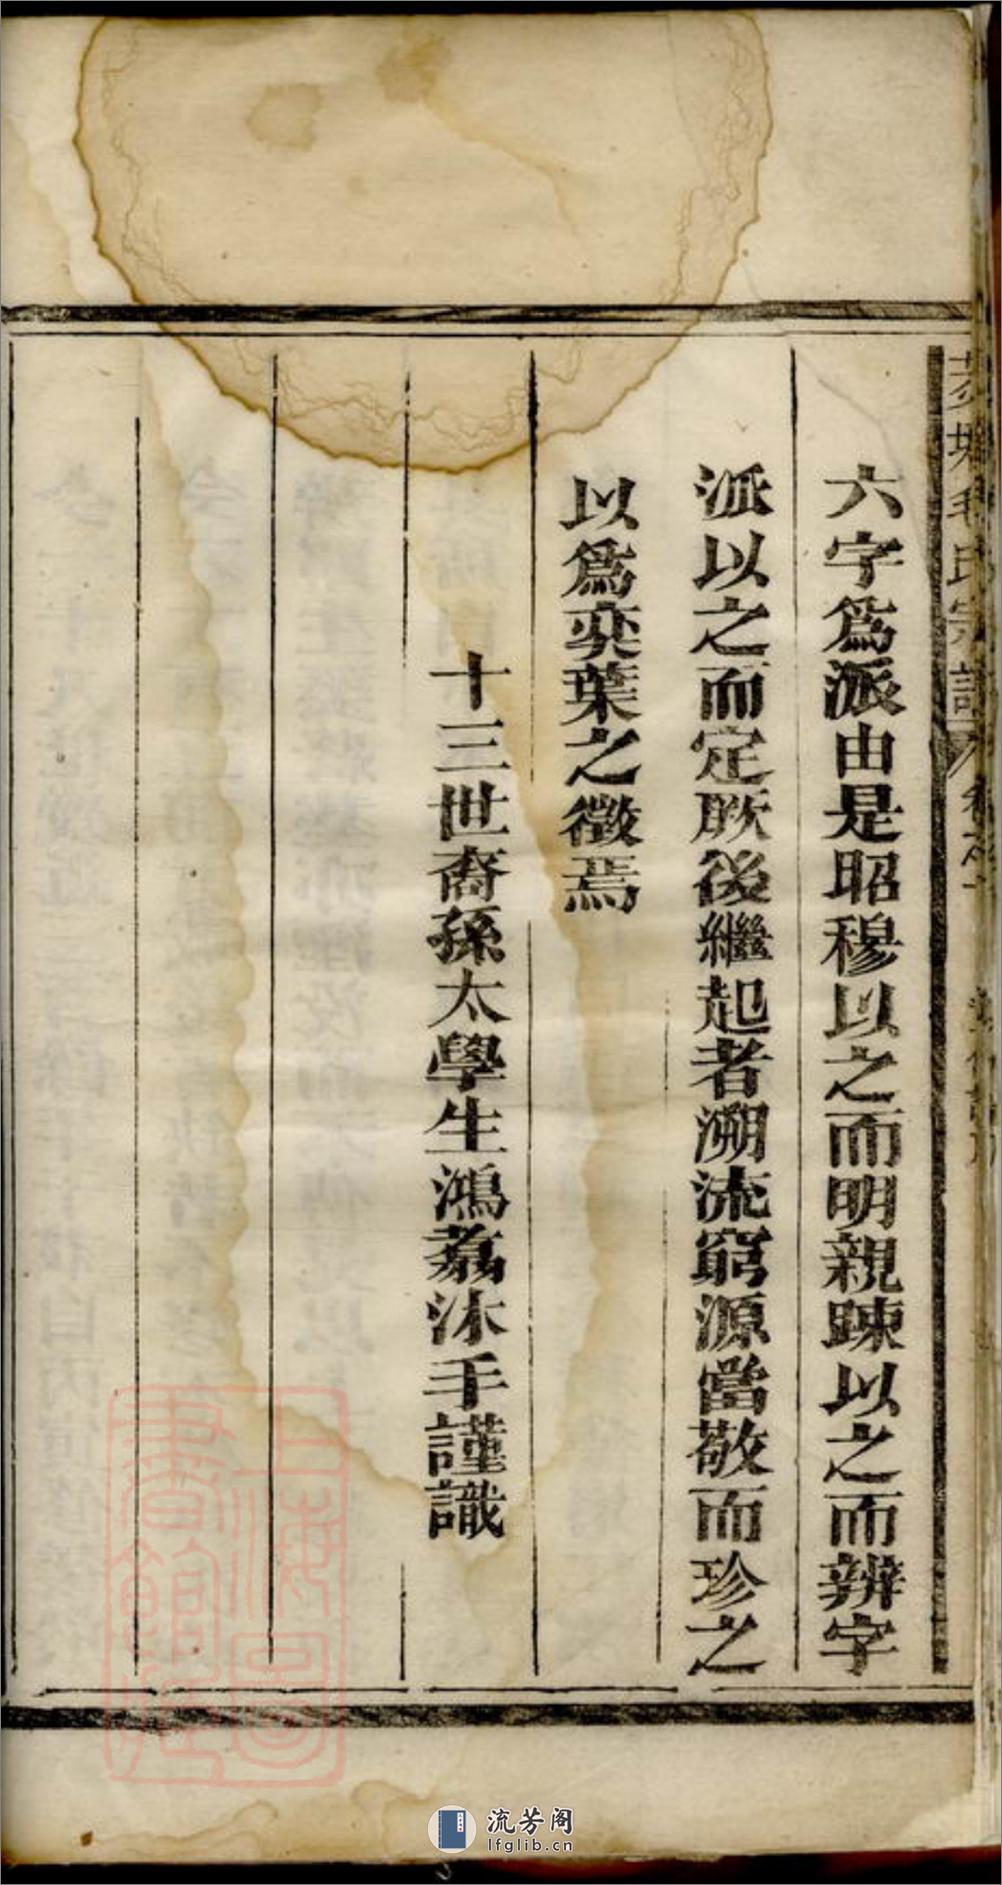 六字爲派由是昭穆以之而明親踈以之而辨字
派以之而定厥後繼起者溯流窮源當敬而珍之
以爲奕葉之徵焉
十三世裔孫太學生鴻荔沐手謹識
毛氏宗譜
上海圖書館藏
流芳阁
lfglib.cn